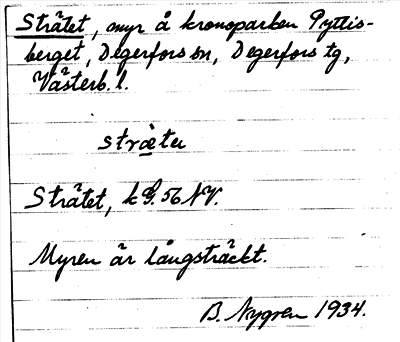 Strätet, myr å kronoparken Pyttis-
berget, Degerfors sn, Degerfors tg,
Västerb. l.
strætu
Strätet, k G. 56 NV.
Myren är långsträckt.
B. Nygren 1934.